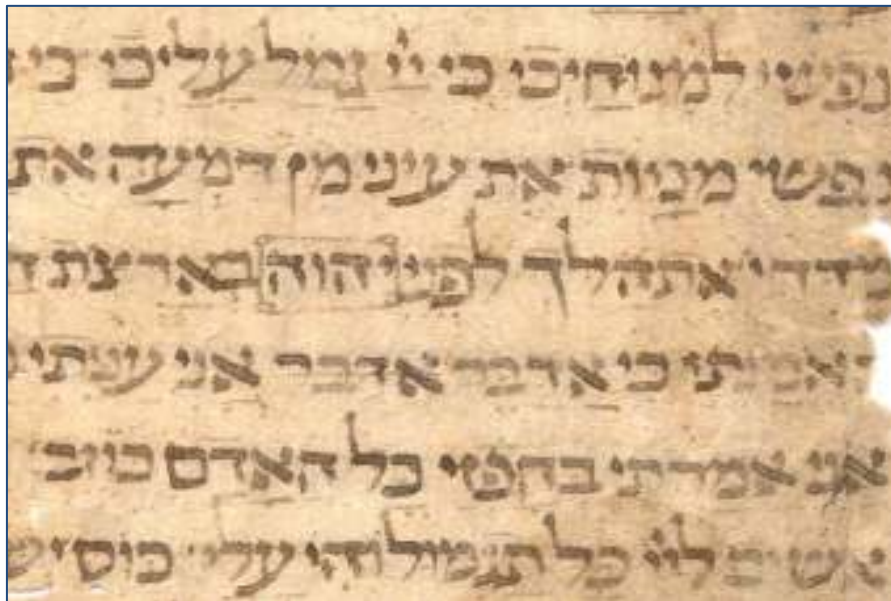 נפשי למנוחיכי כי יי גמל עליכי כי
נפשי ממות את עיני מן דמעה את
מדחי אתהלך לפני יהוה בארצת
האמנתי כי אדבר אדבר אני עניתי
אני אמרתי בחפזי כל האדם כוזב
אשיב ליי כל תגמולוהי עלי כוס